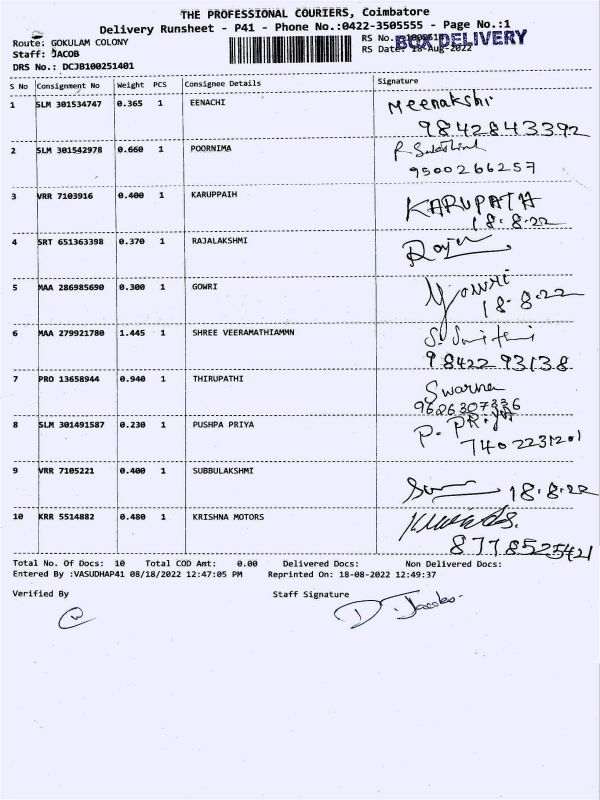 THE PROFESSIONAL COURIERS, Coimbatore
Delivery Runsheet - P41 - Phone No.:0422-3505555 - Page No.:1
Route: GOKULAM COLONY
RS No.
BOX DELIVERY
Staff: JACOB
RS Date: 18-Aug-2022
DRS No.: DCJB100251401
S No Consignment No Weight PCS Consignee Details Signature
1 SLM 301534747 0.365 1 EENACHI Meenakshi
9842843392
2 SLM 301542978 0.660 1 POORNIMA
9500266257
3 VRR 7103916 0.400 1 KARUPPAIH KARUPATA
18.8.22
4 SRT 651363398 0.370 1 RAJALAKSHMI
5 MAA 286985690 0.300 1 GOWRI Gowri
18-8-22
6 MAA 279921780 1.445 1 SHREE VEERAMATHIAMMN
98422 93138
7 PRO 13658944 0.940 1 THIRUPATHI Swarna
9626307336
8 SLM 301491587 0.230 1 PUSHPA PRIYA P. PRiya
7402231201
9 VRR 7105221 0.400 1 SUBBULAKSHMI
18.8.22
10 KRR 5514882 0.480 1 KRISHNA MOTORS
8778525421
Total No. Of Docs: 10 Total COD Amt: 0.00 Delivered Docs: Non Delivered Docs:
Entered By :VASUDHAP41 08/18/2022 12:47:05 PM Reprinted On: 18-08-2022 12:49:37
Verified By Staff Signature
D. Jacob